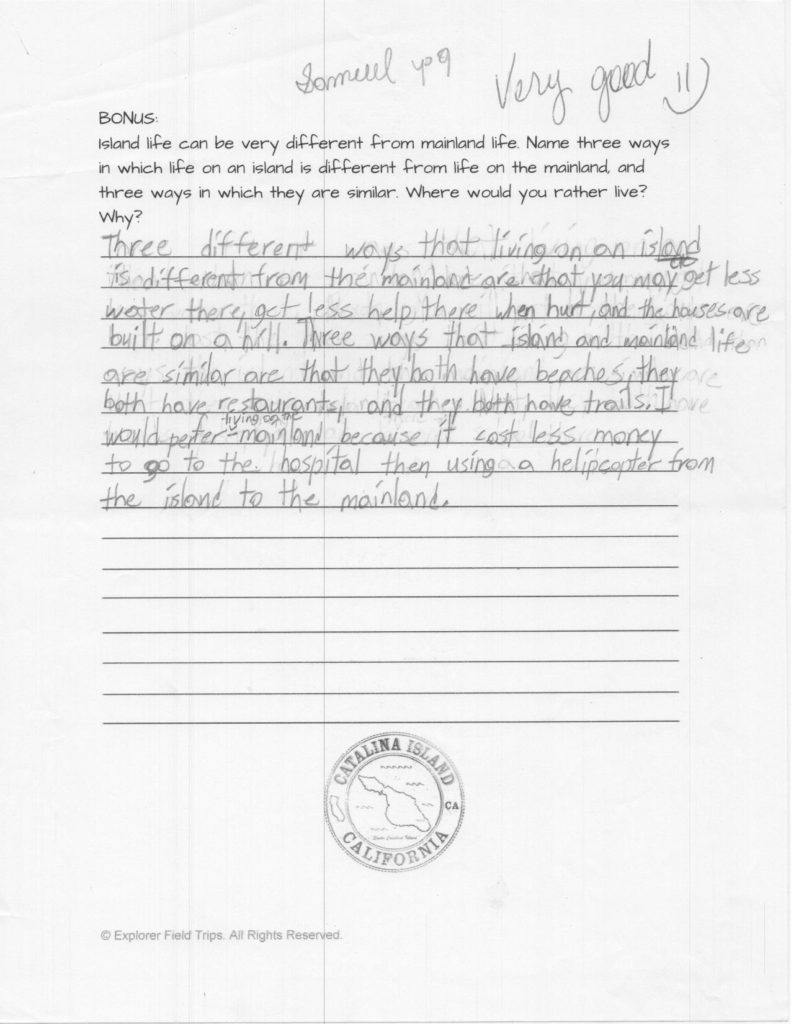 Samuel
Very good
BONUS:
Island life can be very different from mainland life. Name three ways
in which life on an island is different from life on the mainland, and
three ways in which they are similar. Where would you rather live?
Why?
Three different ways that living on an island
is different from the mainland are that you may get less
water there, get less help there when hurt, and the houses are
built on a hill. Three ways that island and mainland life
are similar are that they both have beaches, they
both have restaurants, and they both have trails. I
living on the
would perfer mainland because it cost less money
to go to the hospital then using a helipcopter from
the island to the mainland.
CATALINA ISLAND
CA
CALIFORNIA
© Explorer Field Trips. All Rights Reserved.